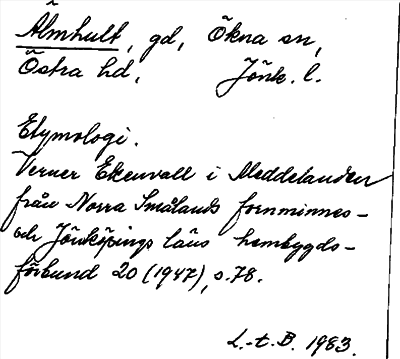 Älmhult, gd, Ökna sn,
Östra hd, Jönk. l.
Etymologi.
Verner Ekenvall i Meddelanden
från Norra Smålands fornminnes-
och Jönköpings läns hembygds-
förbund 20 (1947), s. 78.
L.-t. B. 1983.